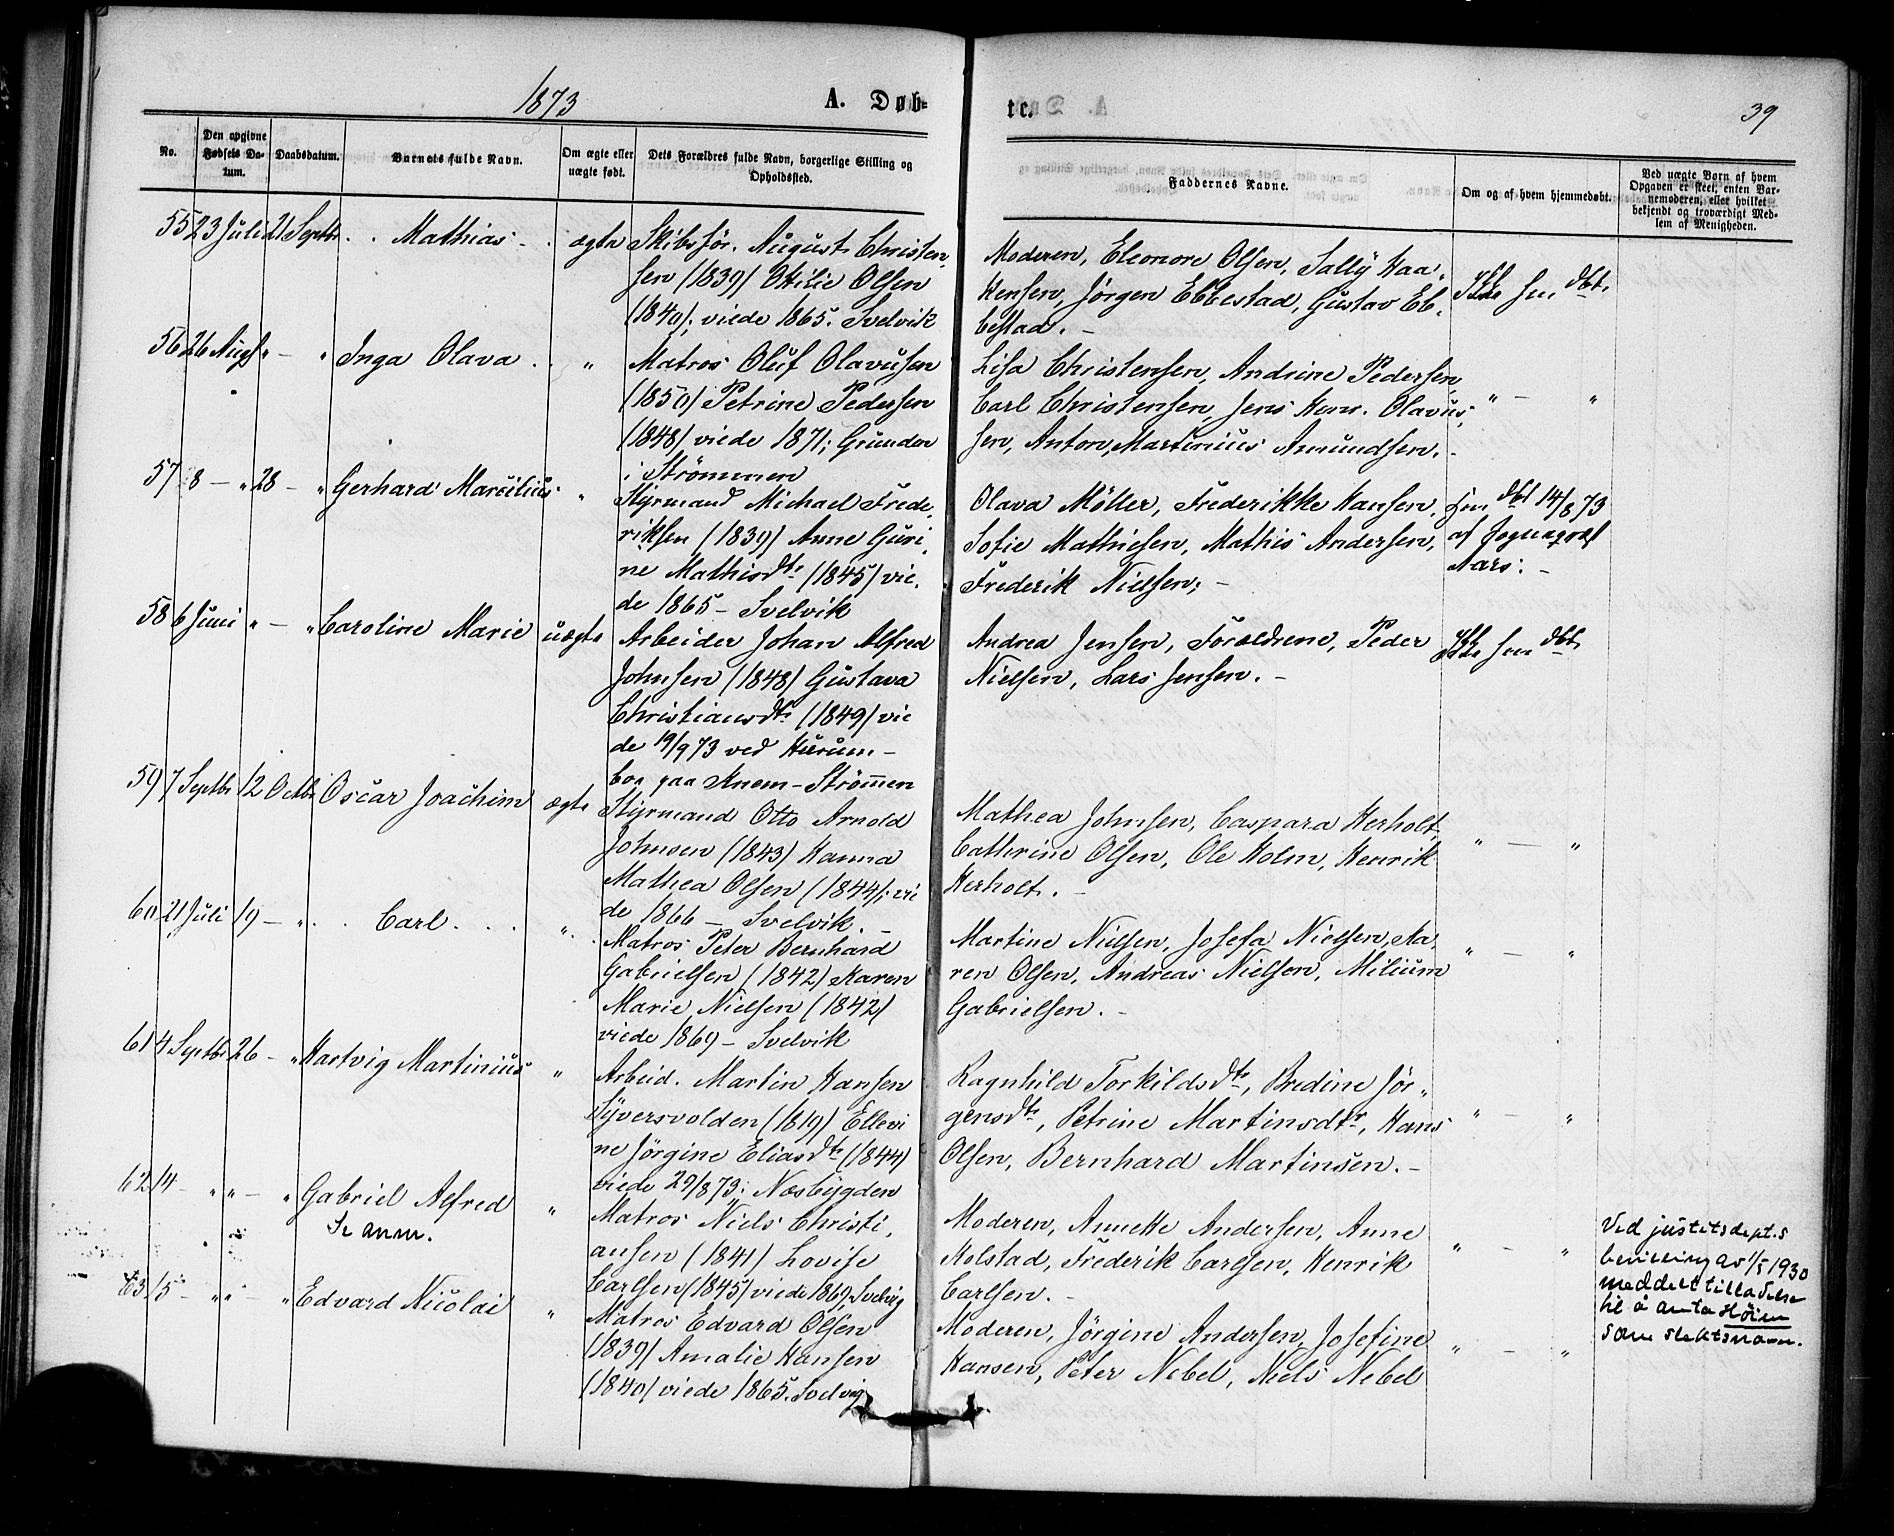 1873
A. Døb-
te.
39
No.
Den opgivne Fødsels Da-tum.
Daabsdatum.
Barnets fulde Navn.
Om ægte eller uægte født.
Dets Forældres fulde Navn, borgerlige Stilling og Opholdssted.
Faddernes Navne.
Om og af hvem hjemmedøbt.
Ved uægte Børn af hvem Opgaven er skeet, enten Bar-nemoderen, eller hvilket bekjendt og troværdigt Med-lem af Menigheden.
55 23 Juli 21 Septbr. . Mathias - . ægte
Skibsfør. August Christen-
sen (1839) Otilie Olsen
(1840); viede 1865. Svelvik
Moderen, Eleonore Olsen, Sally Haa-
kensen, Jørgen Ebbestad, Gustav Eb-
bestad. -
Ikke hm dbt.
56 26 Augst " - " Inga Olava . . "
Matros Oluf Olavusen
(1850) Petrine Pedersen
(1848) viede 1871; Grunden
i Strømmen
Lisa Christensen, Andrine Pedersen
Carl Christensen, Jens Henr. Olavus-
sen, Anton Martinius Amundsen. -
" - "
57 8 - " 28 - " Gerhard Marcilius "
Styrmand Michael Frede-
riksen (1839) Anne Guri-
ne Mathisdtr (1845) vie-
de 1865 - Svelvik
Olava Møller, Frederikke Hansen,
Sofie Mathiesen, Mathis Andersen,
Frederik Nielsen; -
hm dbt 14/8 73
af Sognepræst
Aars. -
58 6 Juni " - " Caroline Marie uægte
Arbeider Johan Alfred
Johnsen (1848) Gustava
Christiansdtr (1849) vie
de 19/9 73 ved Hurum -
boe paa Knem - Strømmen
Andrea Jensen, Forældrene, Peder
Nielsen, Lars Jensen. -
Ikke hm dbt.
59 7 Septbr 12 Octbr Oscar Joachim ægte
Styrmand Otto Arnold
Johnsen (1843) Hanna
Mathea Olsen (1844); vi
de 1866 - Svelvik. -
Mathea Johnsen, Caspara Herholt,
Cathrine Olsen, Ole Holm, Henrik
Herholt. -
" - "
60 21 Juli 19 - " . . Carl . . . "
Matros Peter Bernhard
Gabrielsen (1842) Karen
Marie Nielsen (1842)
viede 1869 - Svelvik
Martine Nielsen, Josefa Nielsen, Ka-
ren Olsen, Andreas Nielsen, Milium
Gabrielsen. -
" - "
61 4 Septbr 26 - " Hartvig Martinius "
Arbeid. Martin Hansen
Syversvolden (1819) Ellevi
ne Jørgine Eliasdtr (1844)
viede 29/8 73; Næsbygden
Ragnhild Torkildsdtr, Bredine Jør-
gensdtr, Petrine Martinsdtr, Hans
Olsen, Bernhard Martinsen. -
" - "
62 14 - " " - " Gabriel Alfred "
Se anm.
Matros Niels Christi-
ansen (1841) Lovise
Carlsen (1845) viede 1869, Svelvig
Moderen, Annette Andersen, Anne
Molstad, Frederik Carlsen, Henrik
Carlsen. -
" - "
Ved justitsdept.s
bevilling av 1/5 1930
meddelt tilladelse
til å anta Høien
som slektsnavn.
63 15 - " " - " Edvard Nicolai "
Matros Edvard Olsen
(1839) Amalie Hansen
(1840) viede 1865. Svelvig
Moderen, Jørgine Andersen, Josefine
Hansen, Peter Nebel, Niels Nebel
" - "